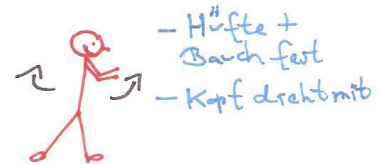 - Hüfte +
Bauch fest
- Kopf dreht mit